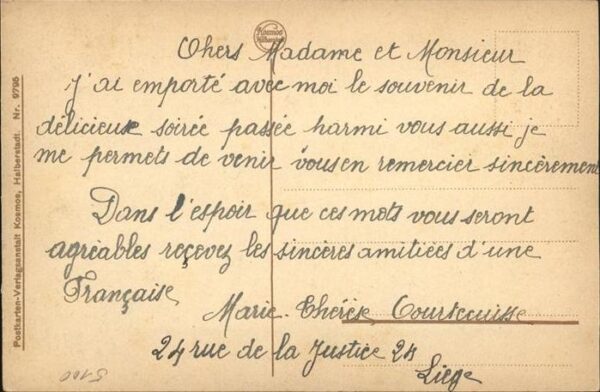 Kosmos
Halberstadt
Chers Madame et Monsieur
j'ai emporté avec moi le souvenir de la
délicieuse soirée passée harmi vous aussi je
me permets de venir vous en remercier sincèrement
Dans l'espoir que ces mots vous seront
agréables reçevez les sincères amitiées d'une
Française
Marie-Thérèse Courtecuisse
24 rue de la Justice 24
Liège
5100
Postkarten-Verlagsanstalt Kosmos, Halberstadt. Nr. 9795